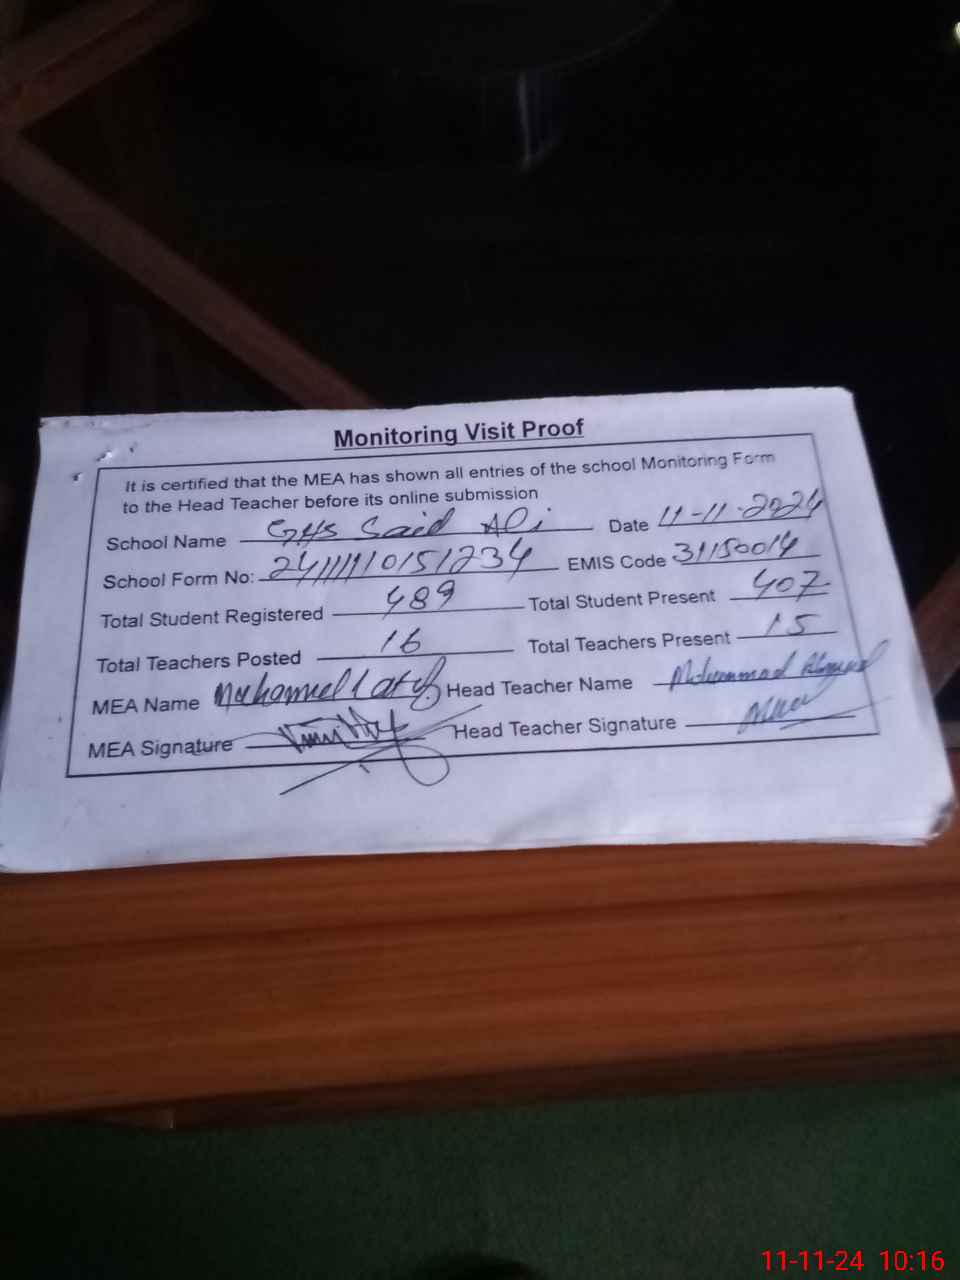 Monitoring Visit Proof
It is certified that the MEA has shown all entries of the school Monitoring Form
to the Head Teacher before its online submission
School Name GHS Said Ali Date 11-11-2024
School Form No: EMIS Code 31150014
Total Student Registered 489 Total Student Present 407
Total Teachers Posted 16 Total Teachers Present 15
MEA Name Muhammad Latif Head Teacher Name Muhammad Ahmad
MEA Signature Head Teacher Signature
11-11-24 10:16